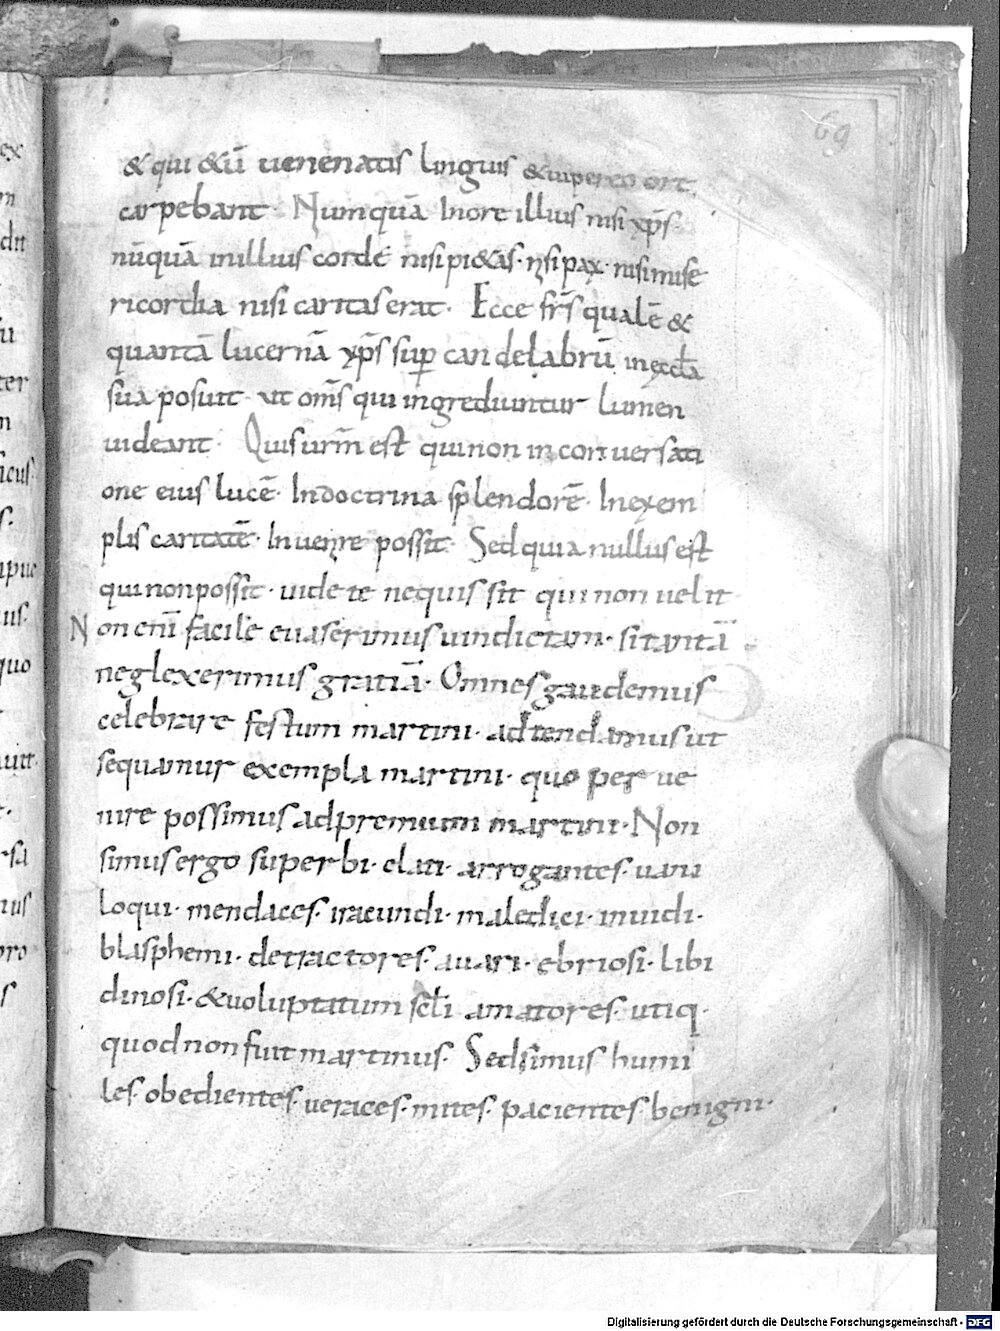 69
& qui &ū uenenatis linguis & uipereo ore
carpebant. Numquā Inore illius nisi xp̄s
nūquā inillius corde nisi pi&as. nisi pax. nisi mise
ricordia nisi caritas erat. Ecce fr̄s qualē &
quantā lucernā xp̄s sup candelabrū
sua posuit. ut om̄s qui ingrediuntur lumen
uideant. Quis urm̄ est qui non in conuersati
one eius lucē. In doctrina splendorē. In exem
plis caritatē. Inuenire possit. Sed quia nullus est
qui non possit. uidete nequis sit qui non uelit
Non eni facile euaserimus uindictam. si tantā
neglexerimus gratiā. Omnes gaudemus
celebrare festum martini. adtendamus ut
sequamur exempla martini. quo perue
nire possimus ad premium martini. Non
simus ergo superbi. elati. arrogantes. uani
loqui. mendaces. iracundi. maledici. inuidi.
blasphemi. detractores. auari. ebriosi. libi
dinosi. & uoluptatum scli amatores. utiq.
quod non fuit martinus. Sed simus humi
les. obedientes. ueraces. mites. pacientes. benigni.
Digitalisierung gefördert durch die Deutsche Forschungsgemeinschaft - DFG